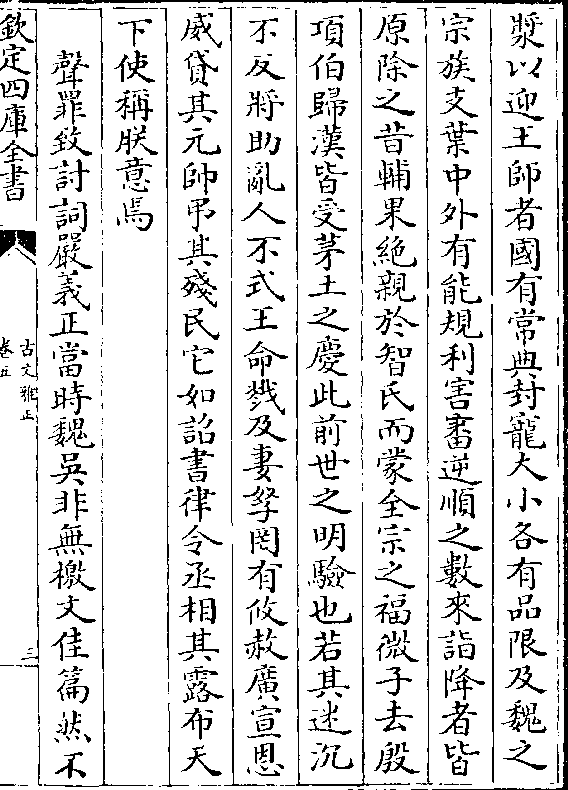 漿以迎王師者國有常典封寵大小各有品限及魏之
宗族支葉中外有能規利害畨逆順之數來詣降者皆
原除之昔輔果絶親於智氏而蒙全宗之福微子去殷
項伯歸漢皆受茅土之慶此前世之明驗也若其迷沉
不反將助亂人不式王命戮及妻孥罔有攸赦廣宣恩
威貸其元帥弔其殘民它如詔書律令丞相其露布天
下使稱朕意焉
聲罪致討詞嚴義正當時魏吳非無檄文佳篇然不
欽定四庫全書
古文雅正
卷五
三